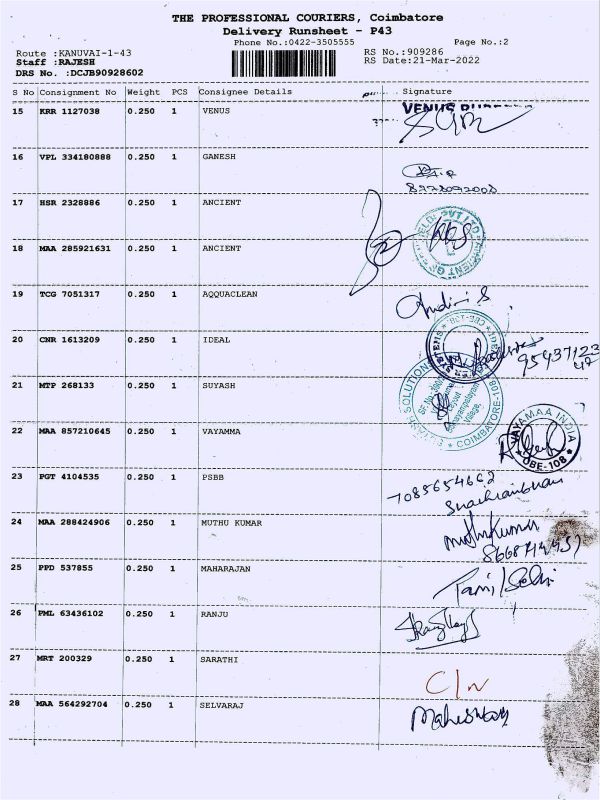 THE PROFESSIONAL COURIERS, Coimbatore
Delivery Runsheet - P43
Phone No.:0422-3505555 Page No.:2
Route :KANUVAI-1-43 RS No.:909286
Staff :RAJESH RS Date:21-Mar-2022
DRS No. :DCJB90928602
S No Consignment No Weight PCS Consignee Details Signature
15 KRR 1127038 0.250 1 VENUS VENUS
16 VPL 334180888 0.250 1 GANESH
17 HSR 2328886 0.250 1 ANCIENT
18 MAA 285921631 0.250 1 ANCIENT
19 TCG 7051317 0.250 1 AQQUACLEAN
20 CNR 1613209 0.250 1 IDEAL
21 MTP 268133 0.250 1 SUYASH
22 MAA 857210645 0.250 1 VAYAMMA VAYAMAA INDIA
23 PGT 4104535 0.250 1 PSBB 7085654662
24 MAA 288424906 0.250 1 MUTHU KUMAR Muthukumar
25 PPD 537855 0.250 1 MAHARAJAN Tamil Selvi
26 PML 63436102 0.250 1 RANJU
27 MRT 200329 0.250 1 SARATHI C/N
28 MAA 564292704 0.250 1 SELVARAJ